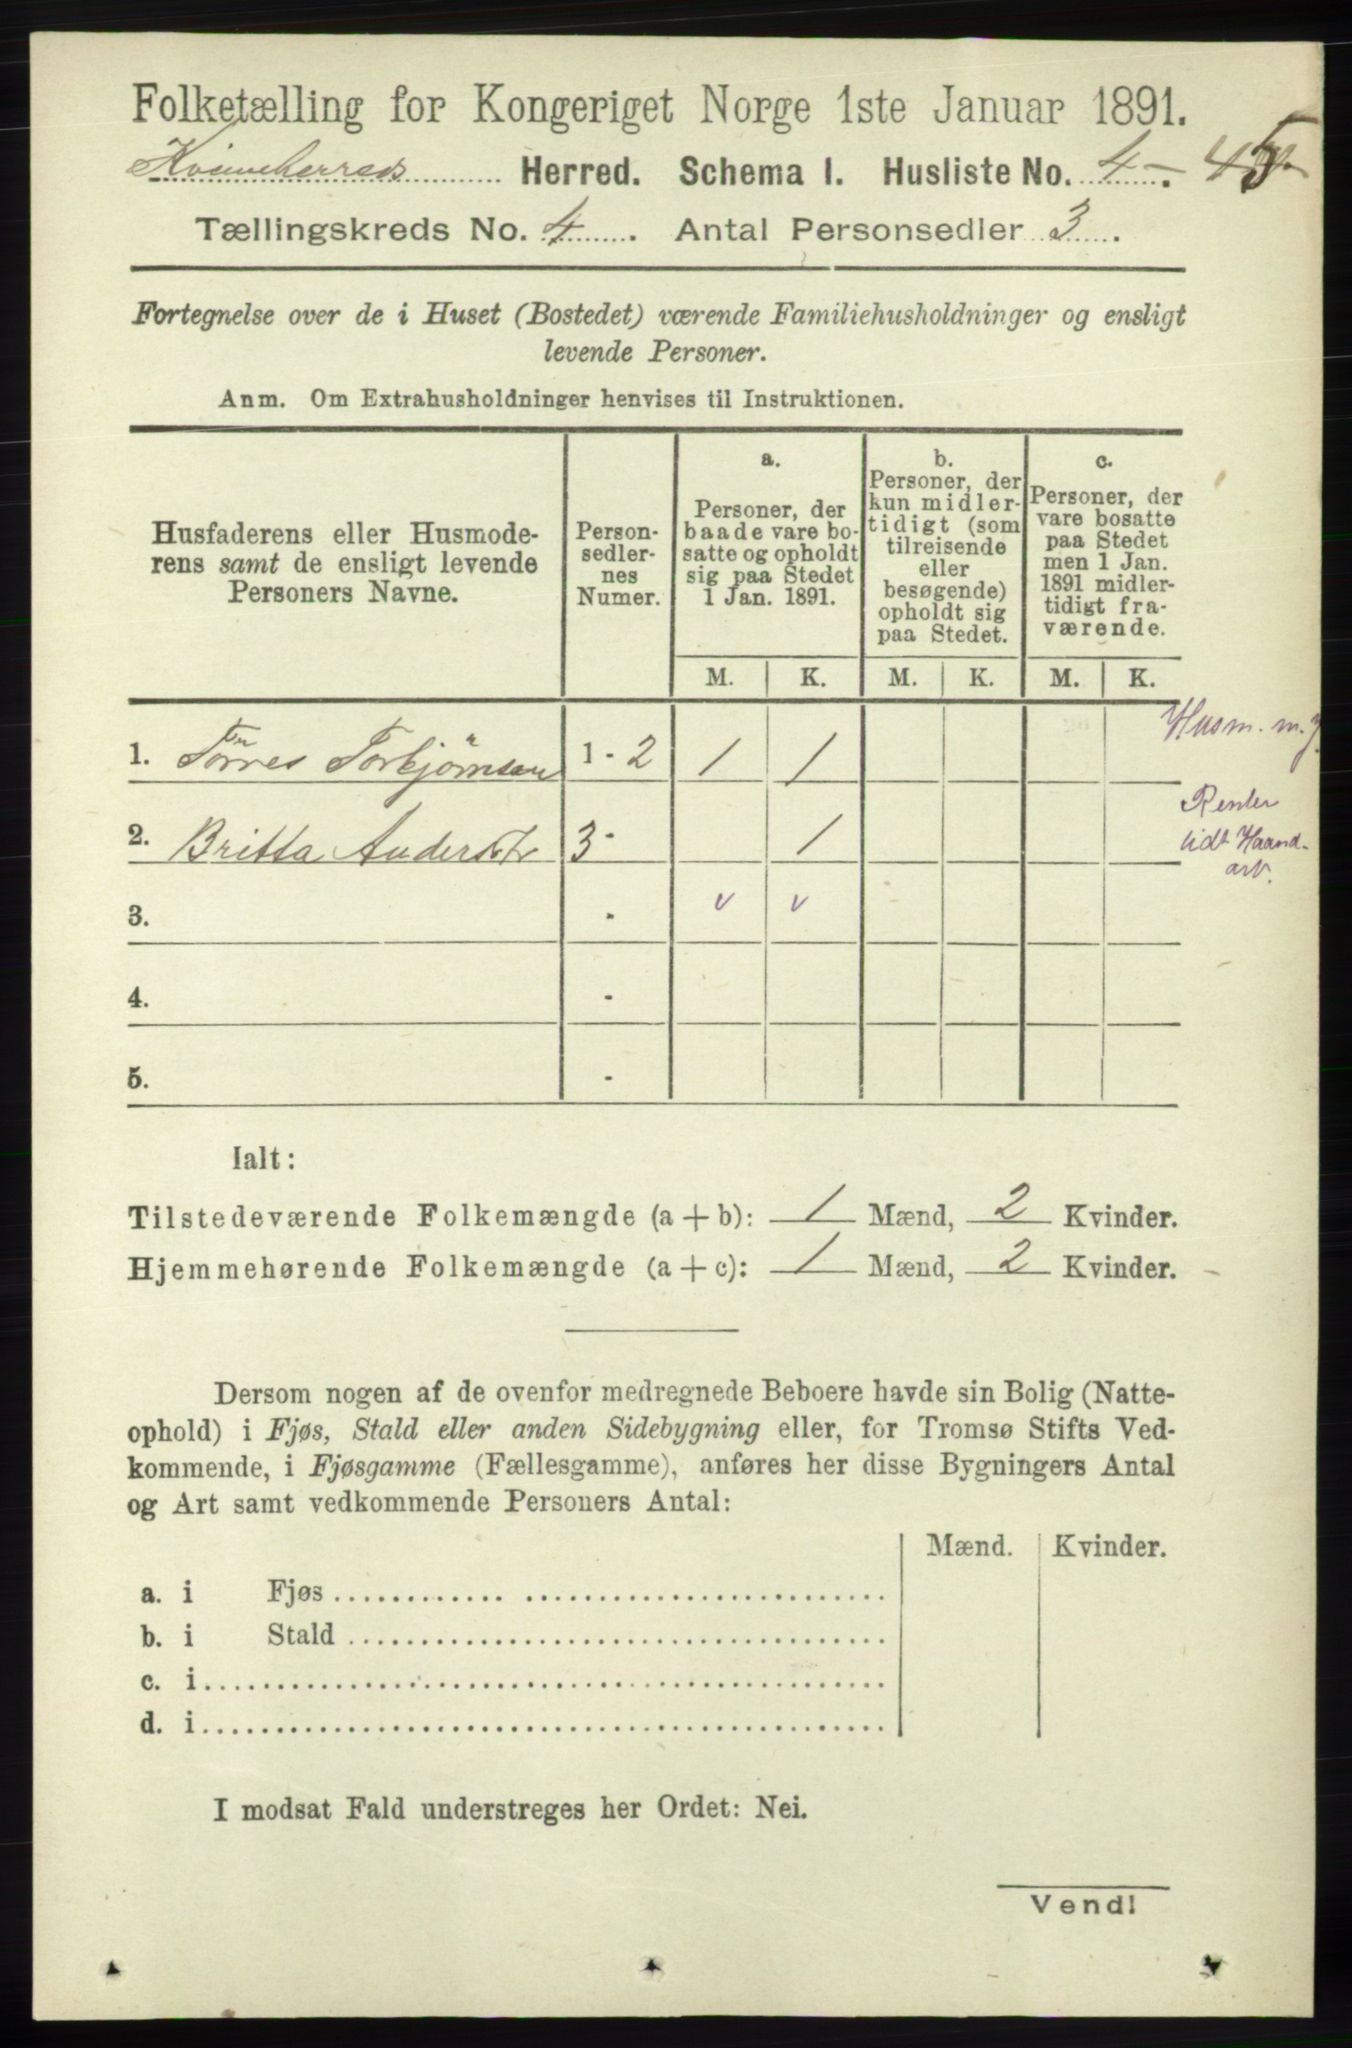 Folketælling for Kongeriget Norge 1ste Januar 1891.
Kvinneherreds Herred. Schema I. Husliste No. 4 -
Tællingskreds No. 4. Antal Personsedler 3.
Fortegnelse over de i Huset (Bostedet) værende Familiehusholdninger og ensligt
levende Personer.
Anm. Om Extrahusholdninger henvises til Instruktionen.
Husfaderens eller Husmode-
rens samt de ensligt levende
Personers Navne.
Person-
sedler-
nes
Numer.
a.
Personer, der
baade vare bo-
satte og opholdt
sig paa Stedet
1 Jan. 1891.
b.
Personer, der
kun midler-
tidigt (som
tilreisende
eller
besøgende)
opholdt sig
paa Stedet.
c.
Personer, der
vare bosatte
paa Stedet
men 1 Jan.
1891 midler-
tidigt fra-
værende.
M. K. M. K. M. K.
1. Tørres Torbjørnsen 1 - 2 1 1 Husm. m. j.
2. Britta Andersdtr 3 - 1
Renter
lidt Haand-
arb.
3. - v v
4. -
5. -
Ialt:
Tilstedeværende Folkemængde (a + b): 1 Mænd, 2 Kvinder.
Hjemmehørende Folkemængde (a + c): 1 Mænd, 2 Kvinder.
Dersom nogen af de ovenfor medregnede Beboere havde sin Bolig (Natte-
ophold) i Fjøs, Stald eller anden Sidebygning eller, for Tromsø Stifts Ved-
kommende, i Fjøsgamme (Fællesgamme), anføres her disse Bygningers Antal
og Art samt vedkommende Personers Antal:
Mænd. Kvinder.
a. i Fjøs
b. i Stald
c. i
d. i
I modsat Fald understreges her Ordet: Nei.
Vend!